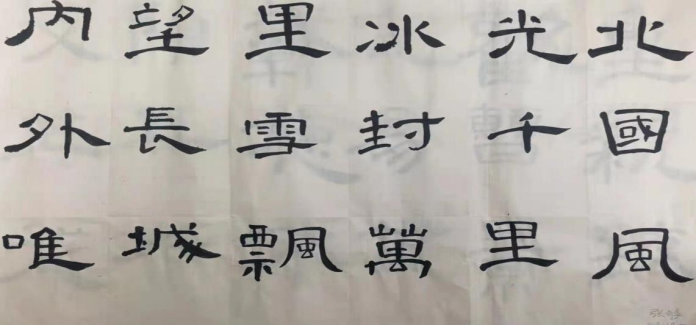 北國風
光千里
冰封萬
里雪飄
望長城
內外唯